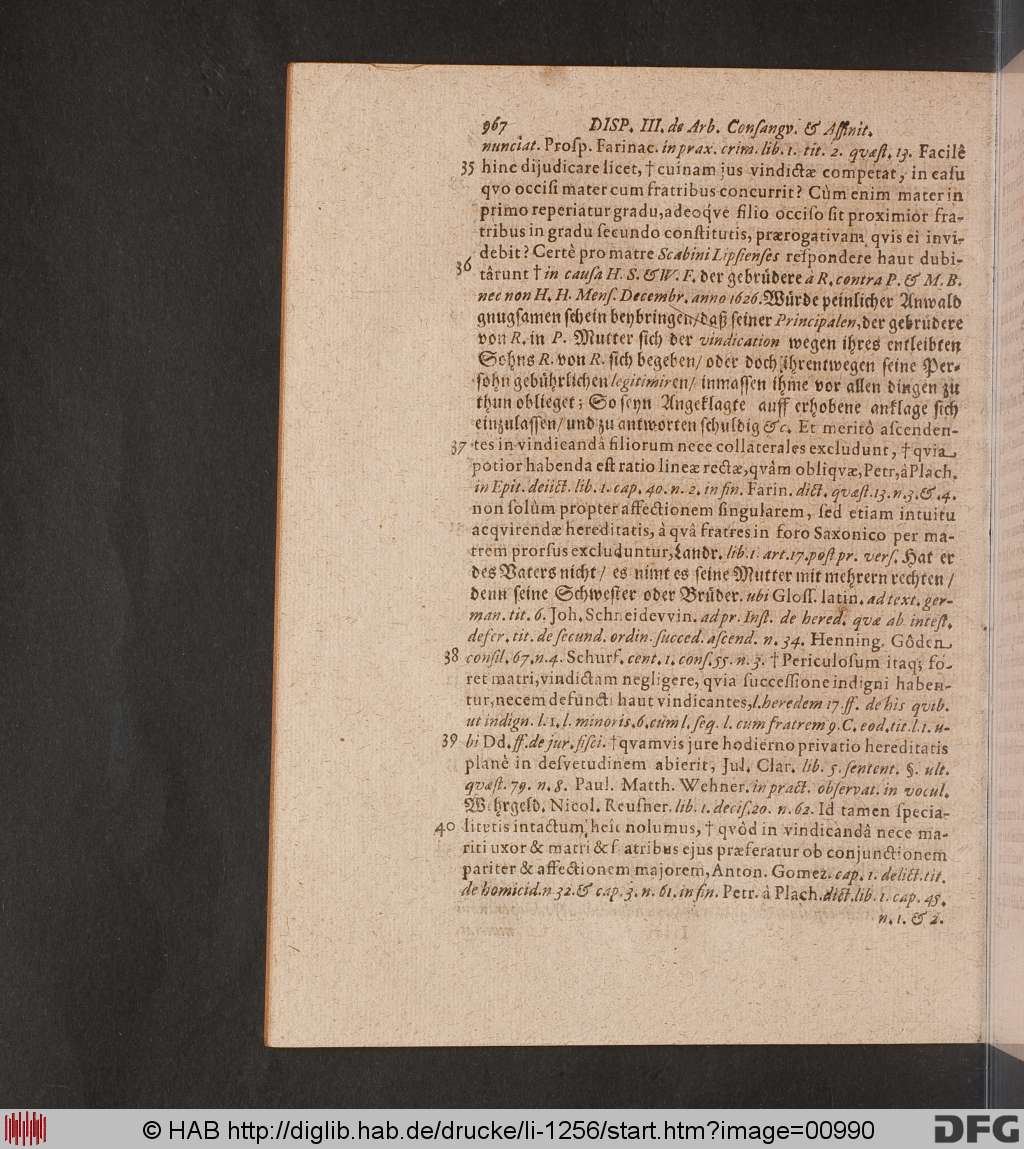 967 DISP. III. de Arb. Conſangv. & Affinit.
nunciat. Proſp. Farinac. in prax. crim. lib. 1. tit. 2. quæſt. 13. Facilê
35 hinc dijudicare licet, † cuinam jus vindictæ competat, in caſu
qvo occiſi mater cum fratribus concurrit? Cùm enim mater in
primo reperiatur gradu, adeoq́ve filio occiſo ſit proximior fra-
tribus in gradu ſecundo conſtitutis, prærogativam qvis ei invi-
debit? Certè pro matre Scabini Lipſienſes reſpondere haut dubi-
36 târunt † in cauſa H. S. & W. F. der gebrüdere à R. contra P. & M. B.
nec non H. H. Menſ. Decembr. anno 1626. Würde peinlicher Anwald
gnugſamen ſchein beybringen/ daß ſeiner Principalen, der gebrüdere
von R. in P. Mutter ſich der vindication wegen ihres entleibten
Sohns R. von R. ſich begeben/ oder doch ihrentwegen ſeine Per-
ſohn gebührlichen legitimiren/ inmaſſen ihme vor allen dingen zu
thun oblieget; So ſeyn Angeklagte auff erhobene anklage ſich
einzulaſſen/ und zu antworten ſchuldig &c. Et meritò aſcenden-
37 tes in vindicandâ filiorum nece collaterales excludunt, † qvia
potior habenda eſt ratio lineæ rectæ, qvàm obliqvæ, Petr, à Plach.
in Epit. deiict. lib. 1. cap. 40. n. 2. in fin. Farin. dict. quæſt. 13. n. 3. &. 4.
non ſolùm propter affectionem ſingularem, ſed etiam intuitu
acqvirendæ hereditatis, à qvâ fratres in foro Saxonico per ma-
trem prorſus excluduntur, Landr. lib. 1. art. 17. poſt pr. verſ. Hat er
des Vaters nicht/ es nimt es ſeine Mutter mit mehrern rechten/
denn ſeine Schweſter oder Brüder. ubi Gloſſ. latin. ad text. ger-
man. tit. 6. Joh. Schneidevvin. ad pr. Inſt. de hered. quæ ab inteſt.
defer. tit. de ſecund. ordin. ſucced. aſcend. n. 34. Henning. Göden
38 conſil. 67. n. 4. Schurf. cent. 1. conſ. 55. n. 3. † Periculoſum itaq; fo-
ret matri, vindictam negligere, qvia ſucceſſione indigni haben-
tur, necem defuncti haut vindicantes, l. heredem 17. ff. de his quib.
ut indign. l. 1. l. minoris. 6. cum l. ſeq. l. cum fratrem 9. C. eod. tit. l. 1. u-
39 bi Dd. ff. de jur. fiſci. † qvamvis jure hodierno privatio hereditatis
planè in deſvetudinem abierit, Jul. Clar. lib. 5. ſentent. §. ult.
quæſt. 79. n. 8. Paul. Matth. Wehner. in pract. obſervat. in vocul.
Wehrgeld. Nicol. Reuſner. lib. 1. deciſ. 20. n. 62. Id tamen ſpecia-
40 litetis intactum heîc nolumus, † qvòd in vindicandâ nece ma-
riti uxor & matri & fratribus ejus præferatur ob conjunctionem
pariter & affectionem majorem, Anton. Gomez. cap. 1. delict. tit.
de homicid. n 32. & cap. 3. n. 61. in fin. Petr. à Plach. dict. lib. 1. cap. 45.
n. 1. & 2.
© HAB http://diglib.hab.de/drucke/li-1256/start.htm?image=00990
DFG